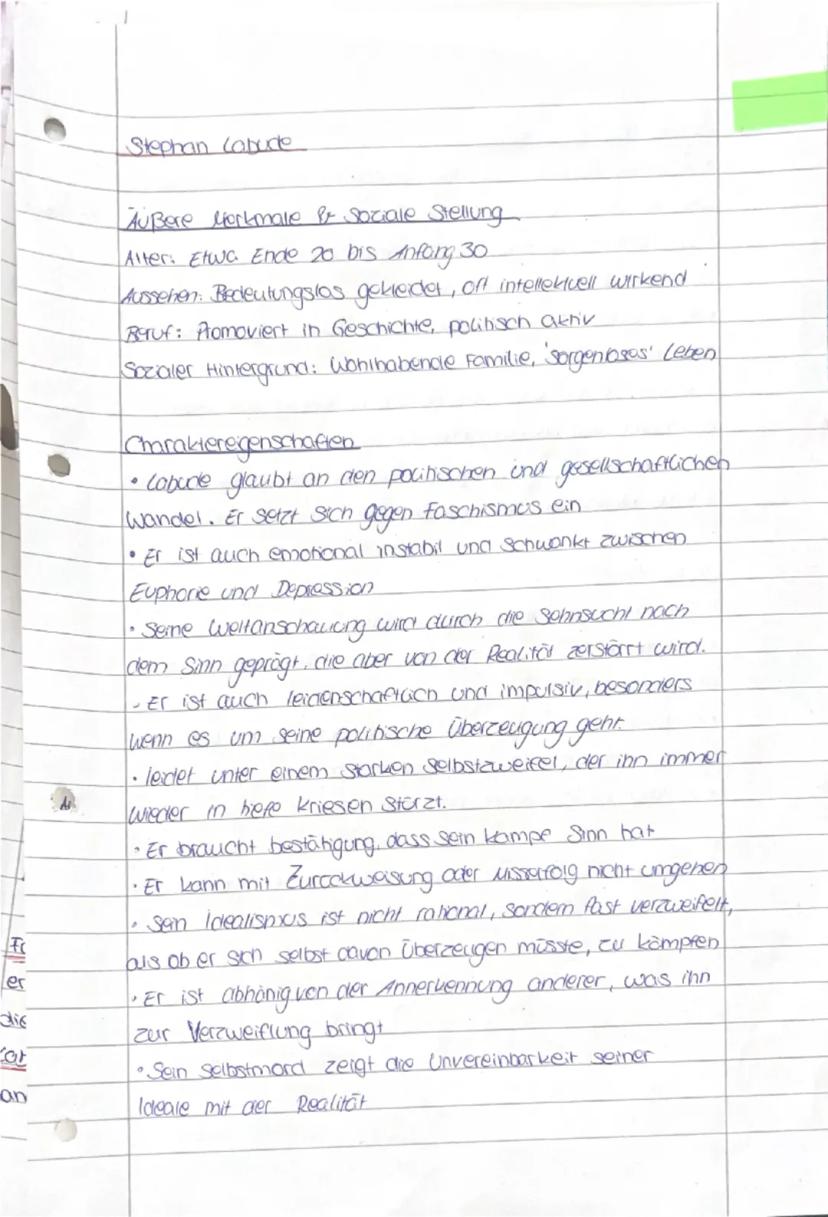 Stephan Labude
Äußere Merkmale & Soziale Stellung
Alter: Etwa Ende 20 bis Anfang 30
Aussehen: Bedeutungslos gekleidet, oft intellektuell wirkend
Beruf: Promoviert in Geschichte, politisch aktiv
Sozialer Hintergrund: Wohlhabende Familie, 'sorgenloses' Leben
Charaktereigenschaften
• Labude glaubt an den politischen und gesellschaftlichen
Wandel. Er setzt sich gegen Faschismus ein
• Er ist auch emotional instabil und schwankt zwischen
Euphorie und Depression
• Seine Weltanschauung wird durch die Sehnsucht nach
dem Sinn geprägt, die aber von der Realität zerstört wird.
- Er ist auch leidenschaftlich und impulsiv, besonders
wenn es um seine politische Überzeugung geht.
• leidet unter einem starken Selbstzweifel, der ihn immer
wieder in tiefe Kriesen stürzt.
• Er braucht bestätigung, dass sein Kampf Sinn hat
• Er kann mit Zurückweisung oder Misserfolg nicht umgehen
• Sein Idealismus ist nicht rational, sondern fast verzweifelt,
als ob er sich selbst davon überzeugen müsste, zu kämpfen
• Er ist abhänig von der Annerkennung anderer, was ihn
zur Verzweiflung bringt
• Sein Selbstmord zeigt die Unvereinbarkeit seiner
Ideale mit der Realität
er
die
an